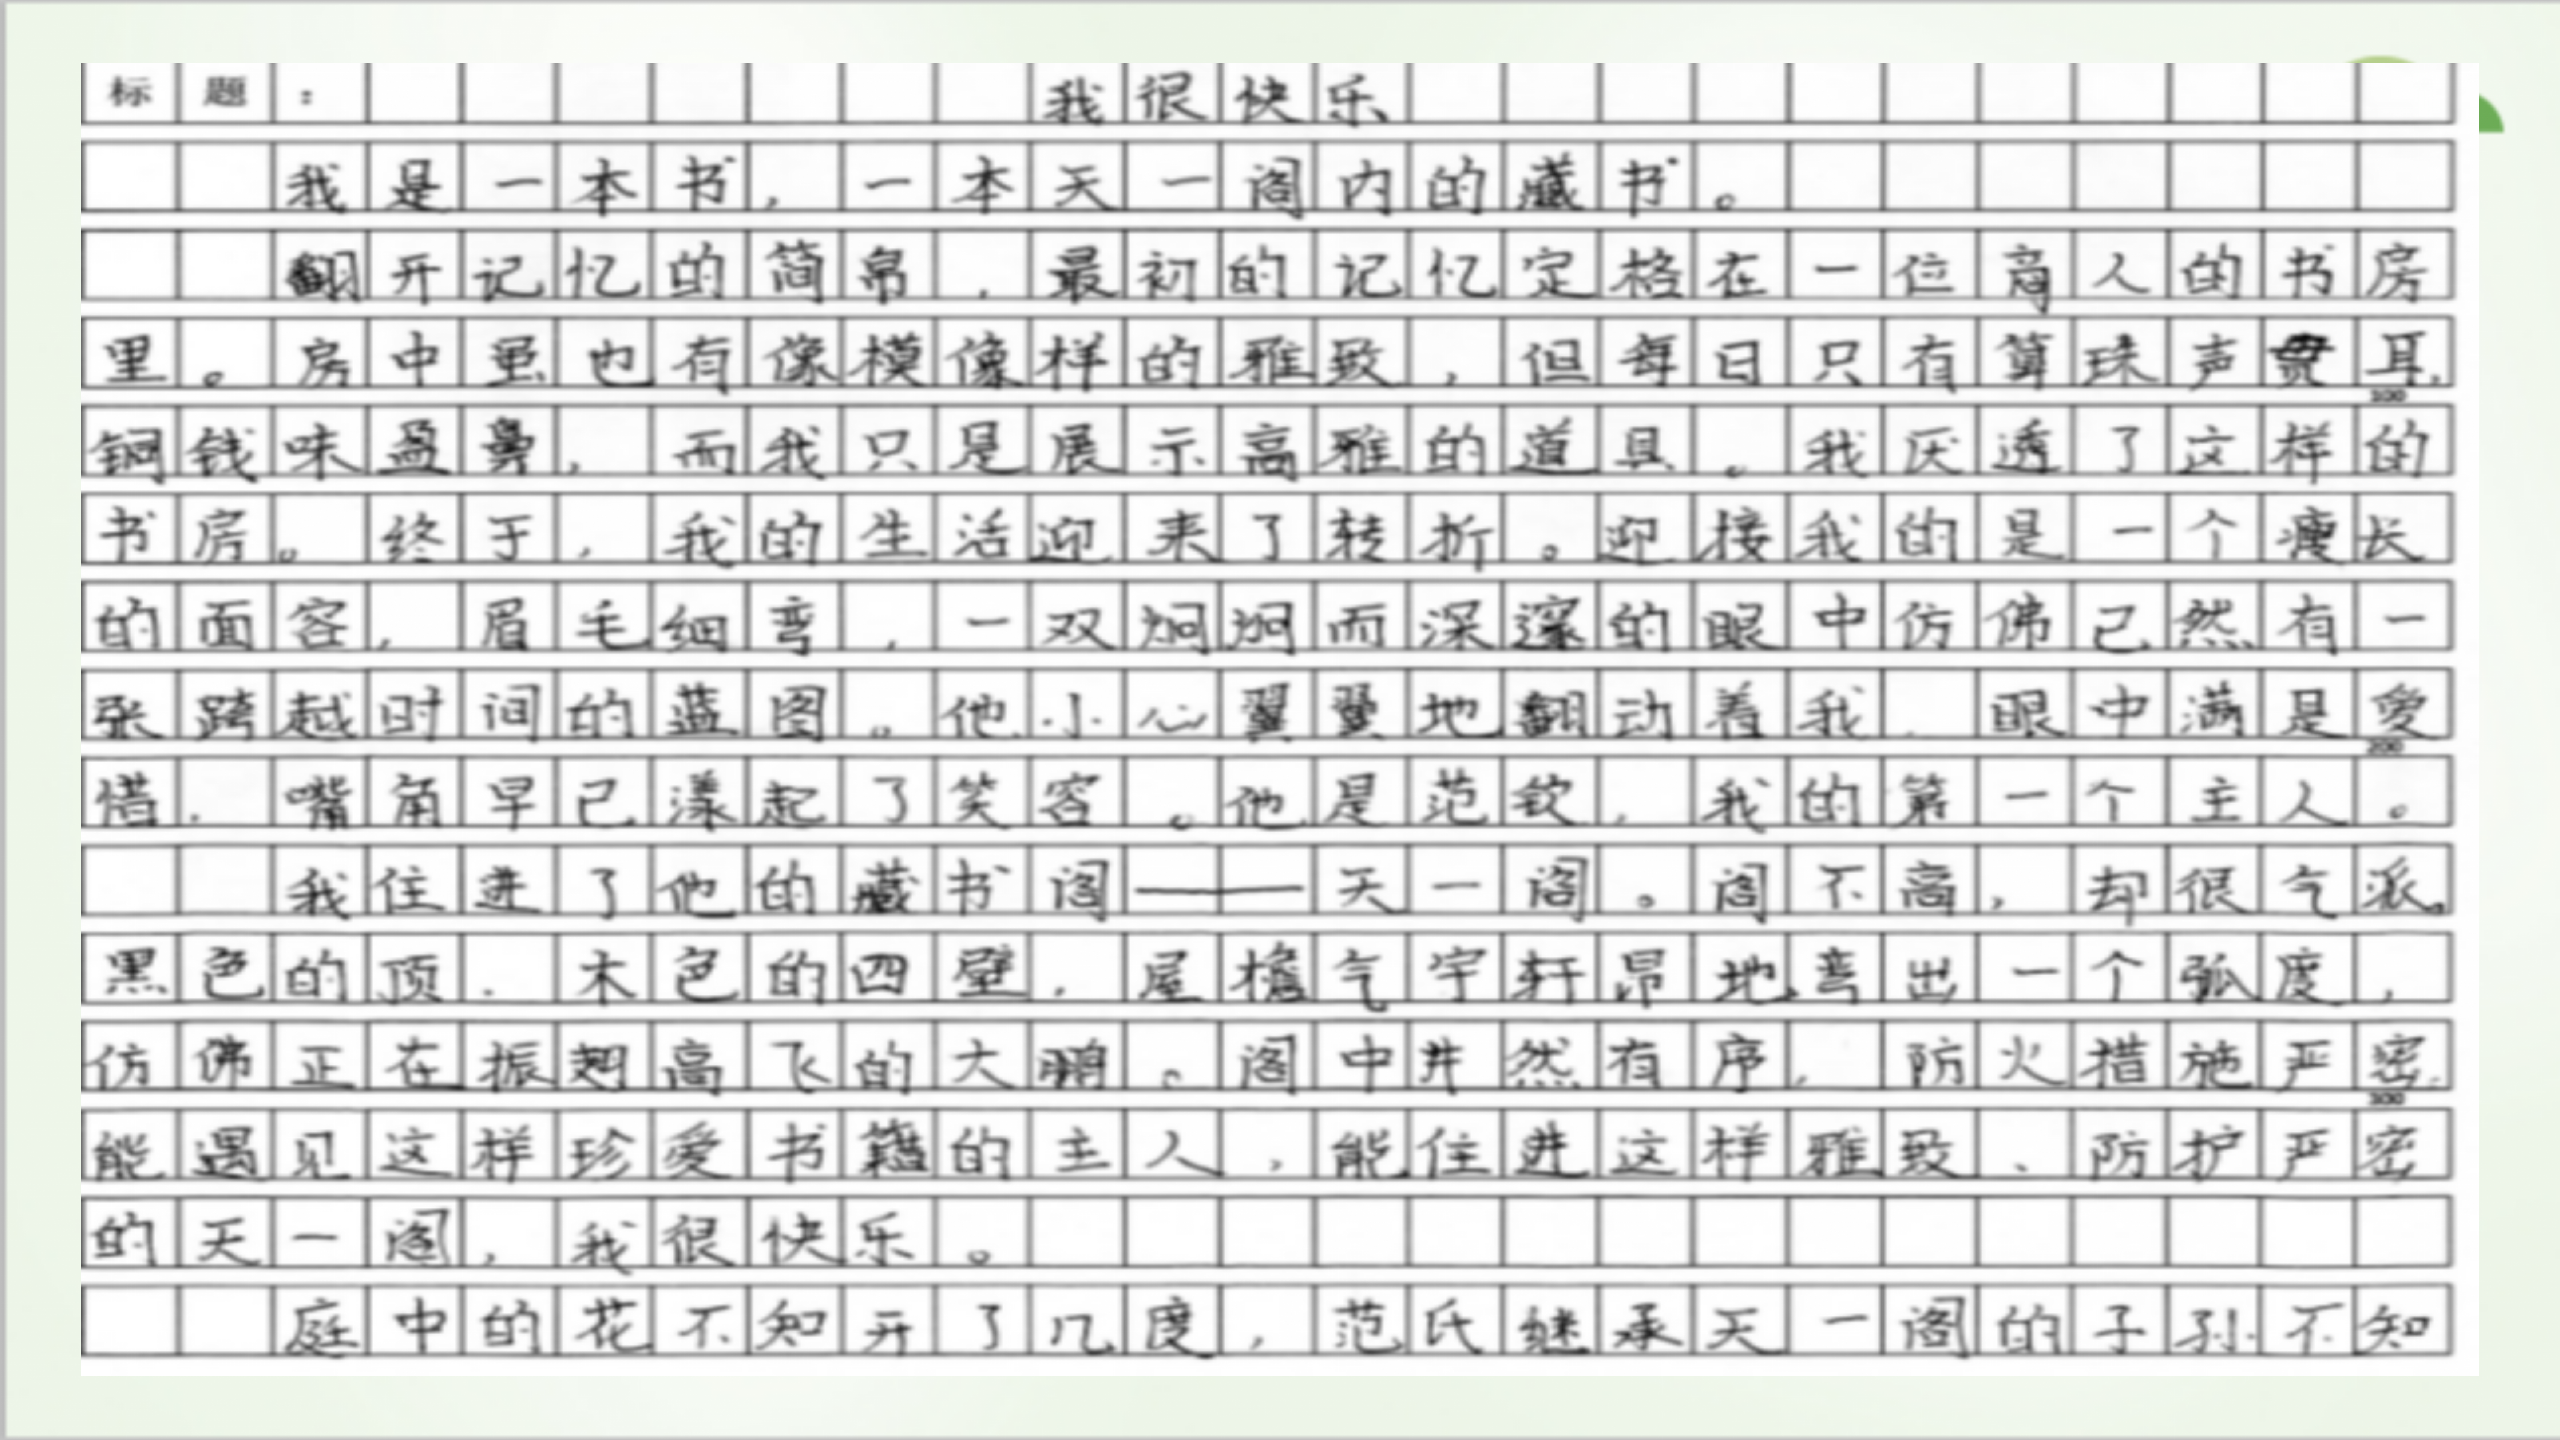 标题： 我很快乐
我是一本书，一本天一阁内的藏书。
翻开记忆的简帛，最初的记忆定格在一位商人的书房
里。房中虽也有像模像样的雅致，但每日只有算珠声贯耳，
100
铜钱味盈鼻，而我只是展示高雅的道具。我厌透了这样的
书房。终于，我的生活迎来了转折。迎接我的是一个瘦长
的面容，眉毛细弯，一双炯炯而深邃的眼中仿佛已然有一
张跨越时间的蓝图。他小心翼翼地翻动着我，眼中满是爱
200
惜，嘴角早已漾起了笑容。他是范钦，我的第一个主人。
我住进了他的藏书阁——天一阁。阁不高，却很气派。
黑色的顶，木色的四壁，屋檐气宇轩昂地弯出一个弧度，
仿佛正在振翅高飞的大鹏。阁中井然有序，防火措施严密.
300
能遇见这样珍爱书籍的主人，能住进这样雅致、防护严密
的天一阁，我很快乐。
庭中的花不知开了几度，范氏继承天一阁的子孙不知